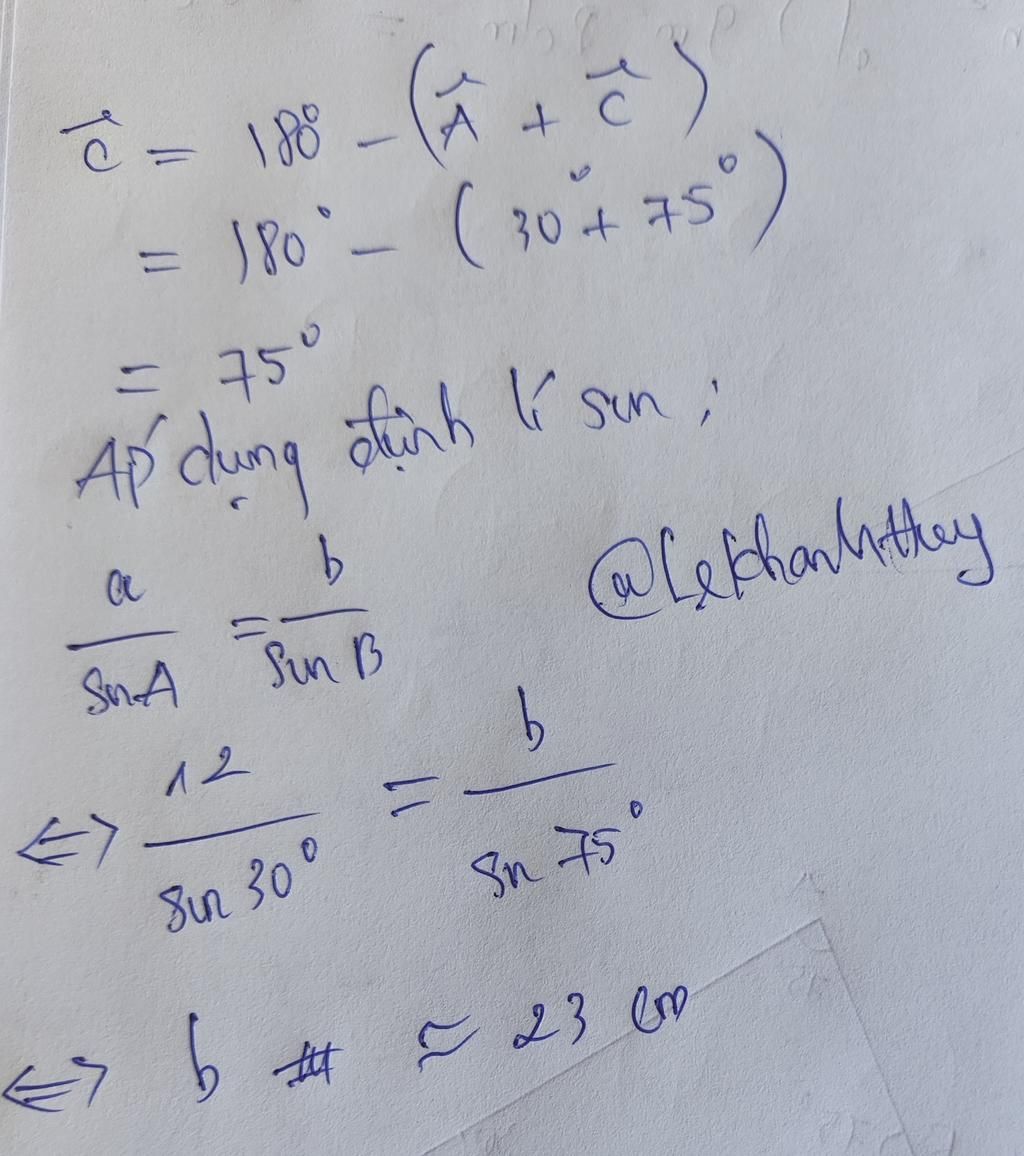 Ĉ = 180° - (Â + Ĉ)
= 180° - (30° + 75°)
= 75°
Áp dụng định lí sin ;
a/sin A = b/sin B
@lekhanhthuy
<=> 12/sin 30° = b/sin 75°
<=> b ≃ 23 cm